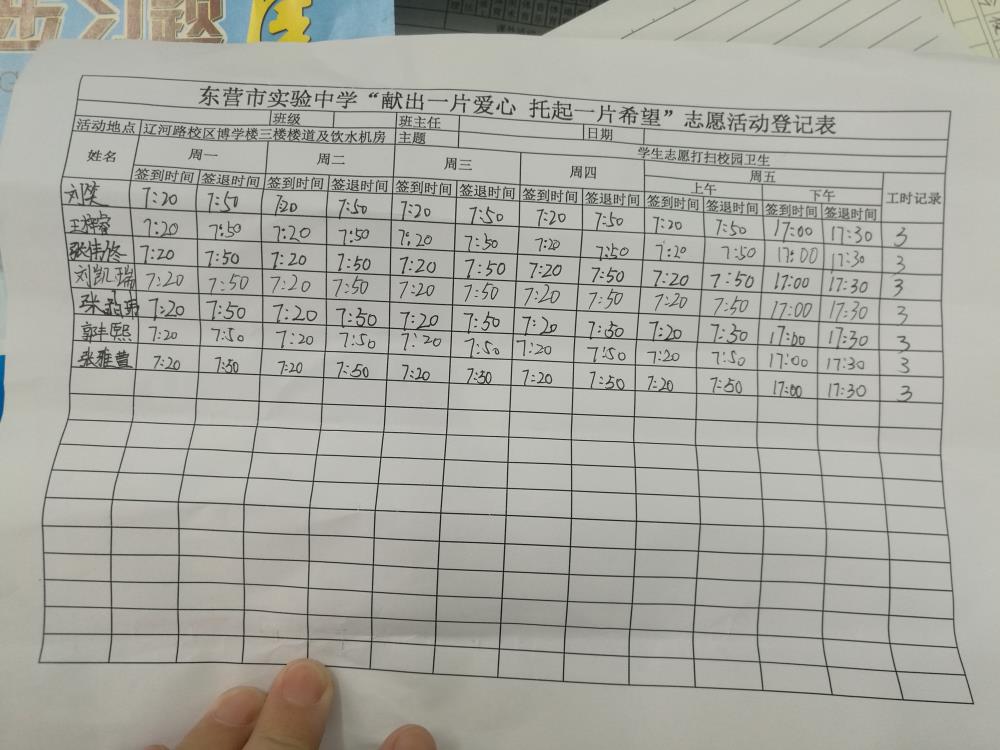 习题
东营市实验中学“献出一片爱心 托起一片希望”志愿活动登记表
班级 班主任 日期
活动地点 辽河路校区博学楼三楼楼道及饮水机房 主题 学生志愿打扫校园卫生
姓名 周一 周二 周三 周四 周五 工时记录
上午 下午
签到时间 签退时间 签到时间 签退时间 签到时间 签退时间 签到时间 签退时间 签到时间 签退时间 签到时间 签退时间
刘笑 7:20 7:50 7:20 7:50 7:20 7:50 7:20 7:50 7:20 7:50 17:00 17:30 3
7:20 7:50 7:20 7:50 7:20 7:50 7:20 7:50 7:20 7:50 17:00 17:30 3
张伟佟 7:20 7:50 7:20 7:50 7:20 7:50 7:20 7:50 7:20 7:50 17:00 17:30 3
刘凯瑞 7:20 7:50 7:20 7:50 7:20 7:50 7:20 7:50 7:20 7:50 17:00 17:30 3
7:20 7:50 7:20 7:50 7:20 7:50 7:20 7:50 7:20 7:50 17:00 17:30 3
郭丰熙 7:20 7:50 7:20 7:50 7:20 7:50 7:20 7:50 7:20 7:50 17:00 17:30 3
张雅萱 7:20 7:50 7:20 7:50 7:20 7:50 7:20 7:50 7:20 7:50 17:00 17:30 3